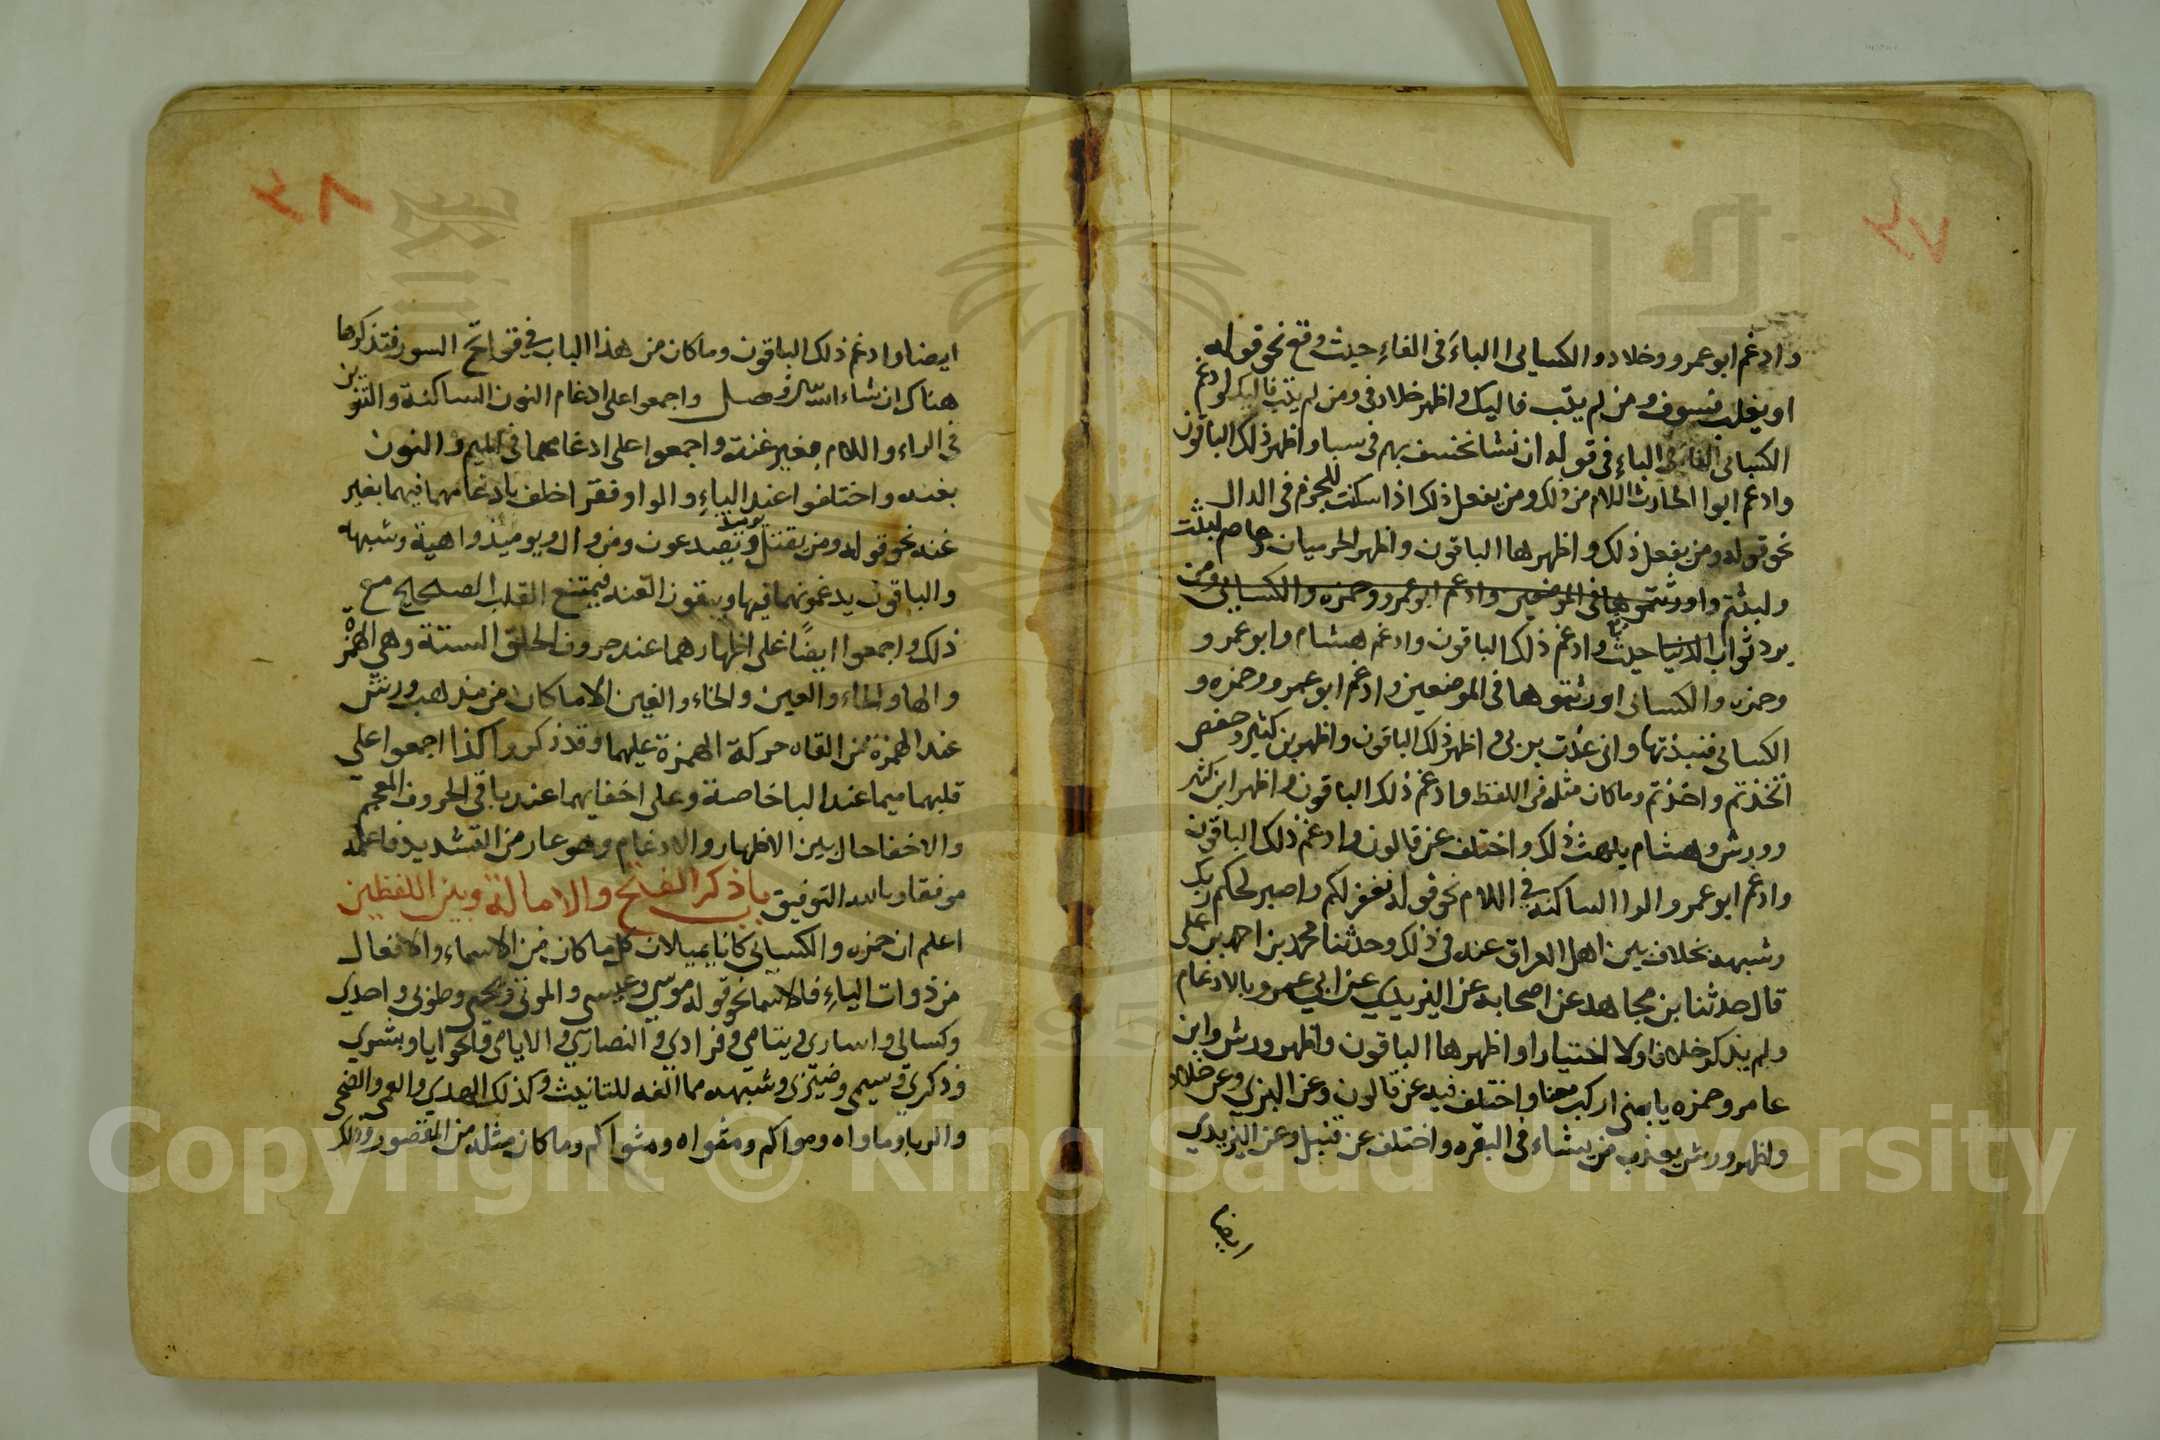 وادغم ابو عمرو وخلاد والكسائى الباء فى الفاء حيث وقع نحو قوله
او يغلب فسوف ومن لم يتب فاليك واظهر خلاد فى ومن لم يتب فاليك وادغم
الكسائى الفا فى الباء فى قوله ان نشا نخسف بهم فى سبا واظهر ذلك الباقون
وادغم ابوا الحارث اللام من ذلك ومن يفعل ذلك اذا سكنت للجزم فى الدال
نحو قوله ومن يفعل ذلك واظهرها الباقون واظهر الحرميان وعاصم لبثت
ولبثتم واورثتموها فى الموضعين وادغم ابو عمرو وحمزه والكسائى ومن
يرد ثواب الدنيا حيث وادغم ذلك الباقون وادغم هشام وابو عمرو و
وحمزه والكسائى اورثتموها فى الموضعين وادغم ابو عمرو وحمزه و
الكسائى فنبذتها وانى عذت بربى واظهر ذلك الباقون واظهر بن كثير وحفص
اتخذتم واخذتم وما كان مثله فى اللفظ وادغم ذلك الباقون واظهر ابن كثير
وورش وهشام يلهث ذلك واختلف عن قالون وادغم ذلك الباقون
وادغم ابو عمرو الرا الساكنه فى اللام نحو قوله نغفر لكم واصبر لحكم ربك
وشبهه بخلاف بين اهل العراق عنه فى ذلك وحدثنا محمد بن احمد بن على
قال حدثنا بن مجاهد عن اصحابه عن اليزيدى عن ابي عمرو بالادغام
ولم يذكر خلافا ولا اختيارا واظهرها الباقون واظهر ورش وابن
عامر وحمزه يا بنى اركب معنا واختلف فيه عن قالون وعن البزى وعن خلاد
واظهر ورش يعذب من يشاء فى البقره واختلف عن قنبل وعن اليزيدي
ايضا
ايضا وادغم ذلك الباقون وما كان من هذا الباب في فواتح السور فتذكرها
هناك ان شاء الله فصل واجمعوا على ادغام النون الساكنة والتنوين
فى الراء واللام بغير غنة واجمعوا على ادغامهما فى الميم والنون
بغنه واختلفوا عند الياء والواو فقرا خلف بادغامهما فيهما بغير
غنه نحو قوله ومن يقتل ويومئذ يصدعون ومن وال ويوميذ واهية وشبهه
والباقون يدغمونهما فيها ويبقون الغنه فيمتنع القلب الصحيح مع
ذلك واجمعوا ايضًا على اظهارهما عند حروف الحلق الستة وهي الهمزة
والها والحاء والعين والخاء والغين الا ما كان من مذهب ورش
عند الهمزة من القاه حركة الهمزة عليهما وقد ذكر وكذا اجمعوا على
قلبهما ميما عند البا خاصة وعلى اخفايهما عند باقى الحروف المعجم
والاخفا حال بين الاظهار والادغام وهو عار من التشديد فاعلمه
موفقا وبالله التوفيق باب ذكر الفتح والامالة وبين اللفظين
اعلم ان حمزه والكسائى كانا يميلان كل ما كان من الاسماء والافعال
من ذوات الياء فالاسما نحو قوله موسى وعيسى والموتى ويحيى وطوبى واحدي
وكسالى واسارى ويتامى وفرادى والنصارى والايامى والحوايا وبشري
وذكرى وسيمى وضيزى وشبهه مما الفه للتانيث وكذلك الهدى والعمى والضحى
والربا وماواه وماواكم ومثواه ومثواكم وما كان مثله من المقصور وذلك
Copyright © King Saud University
1957